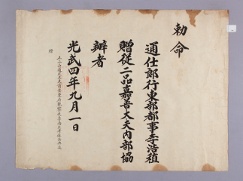 勅命
通仕郎行東部都事李浩稙
贈從二品嘉善大夫內部協
辦者
光武四年九月一日